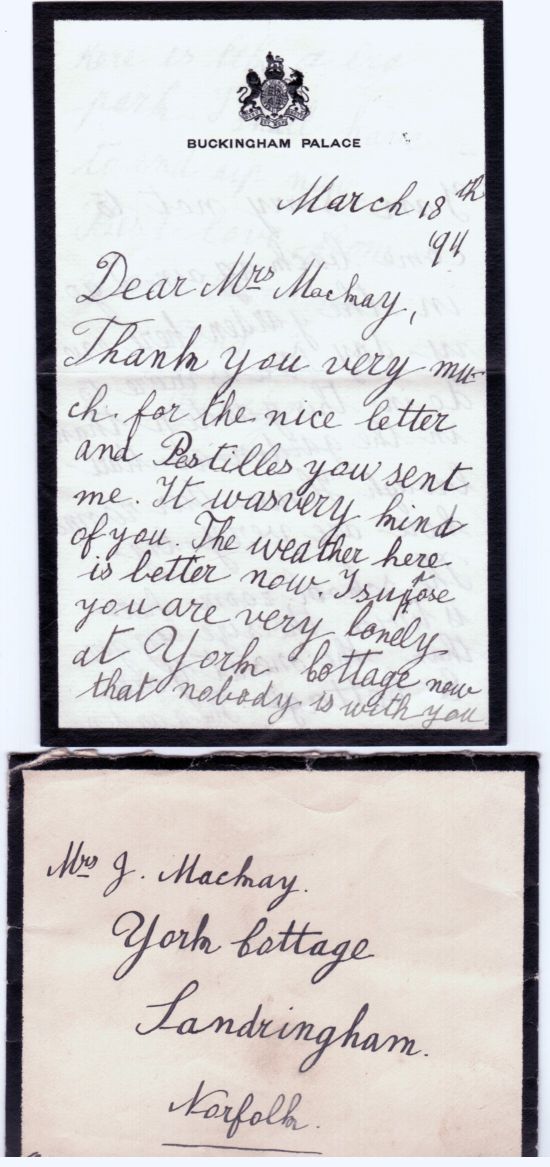 BUCKINGHAM PALACE
March 18th
'94
Dear Mrs Mackay,
Thank you very mu-
ch for the nice letter
and Pestilles you sent
me. It was very kind
of you. The weather here
is better now. I supose
you are very lonely
at York Cottage now
that nobody is with you
Mrs J. Mackay.
York Cottage
Sandringham.
Norfolk.